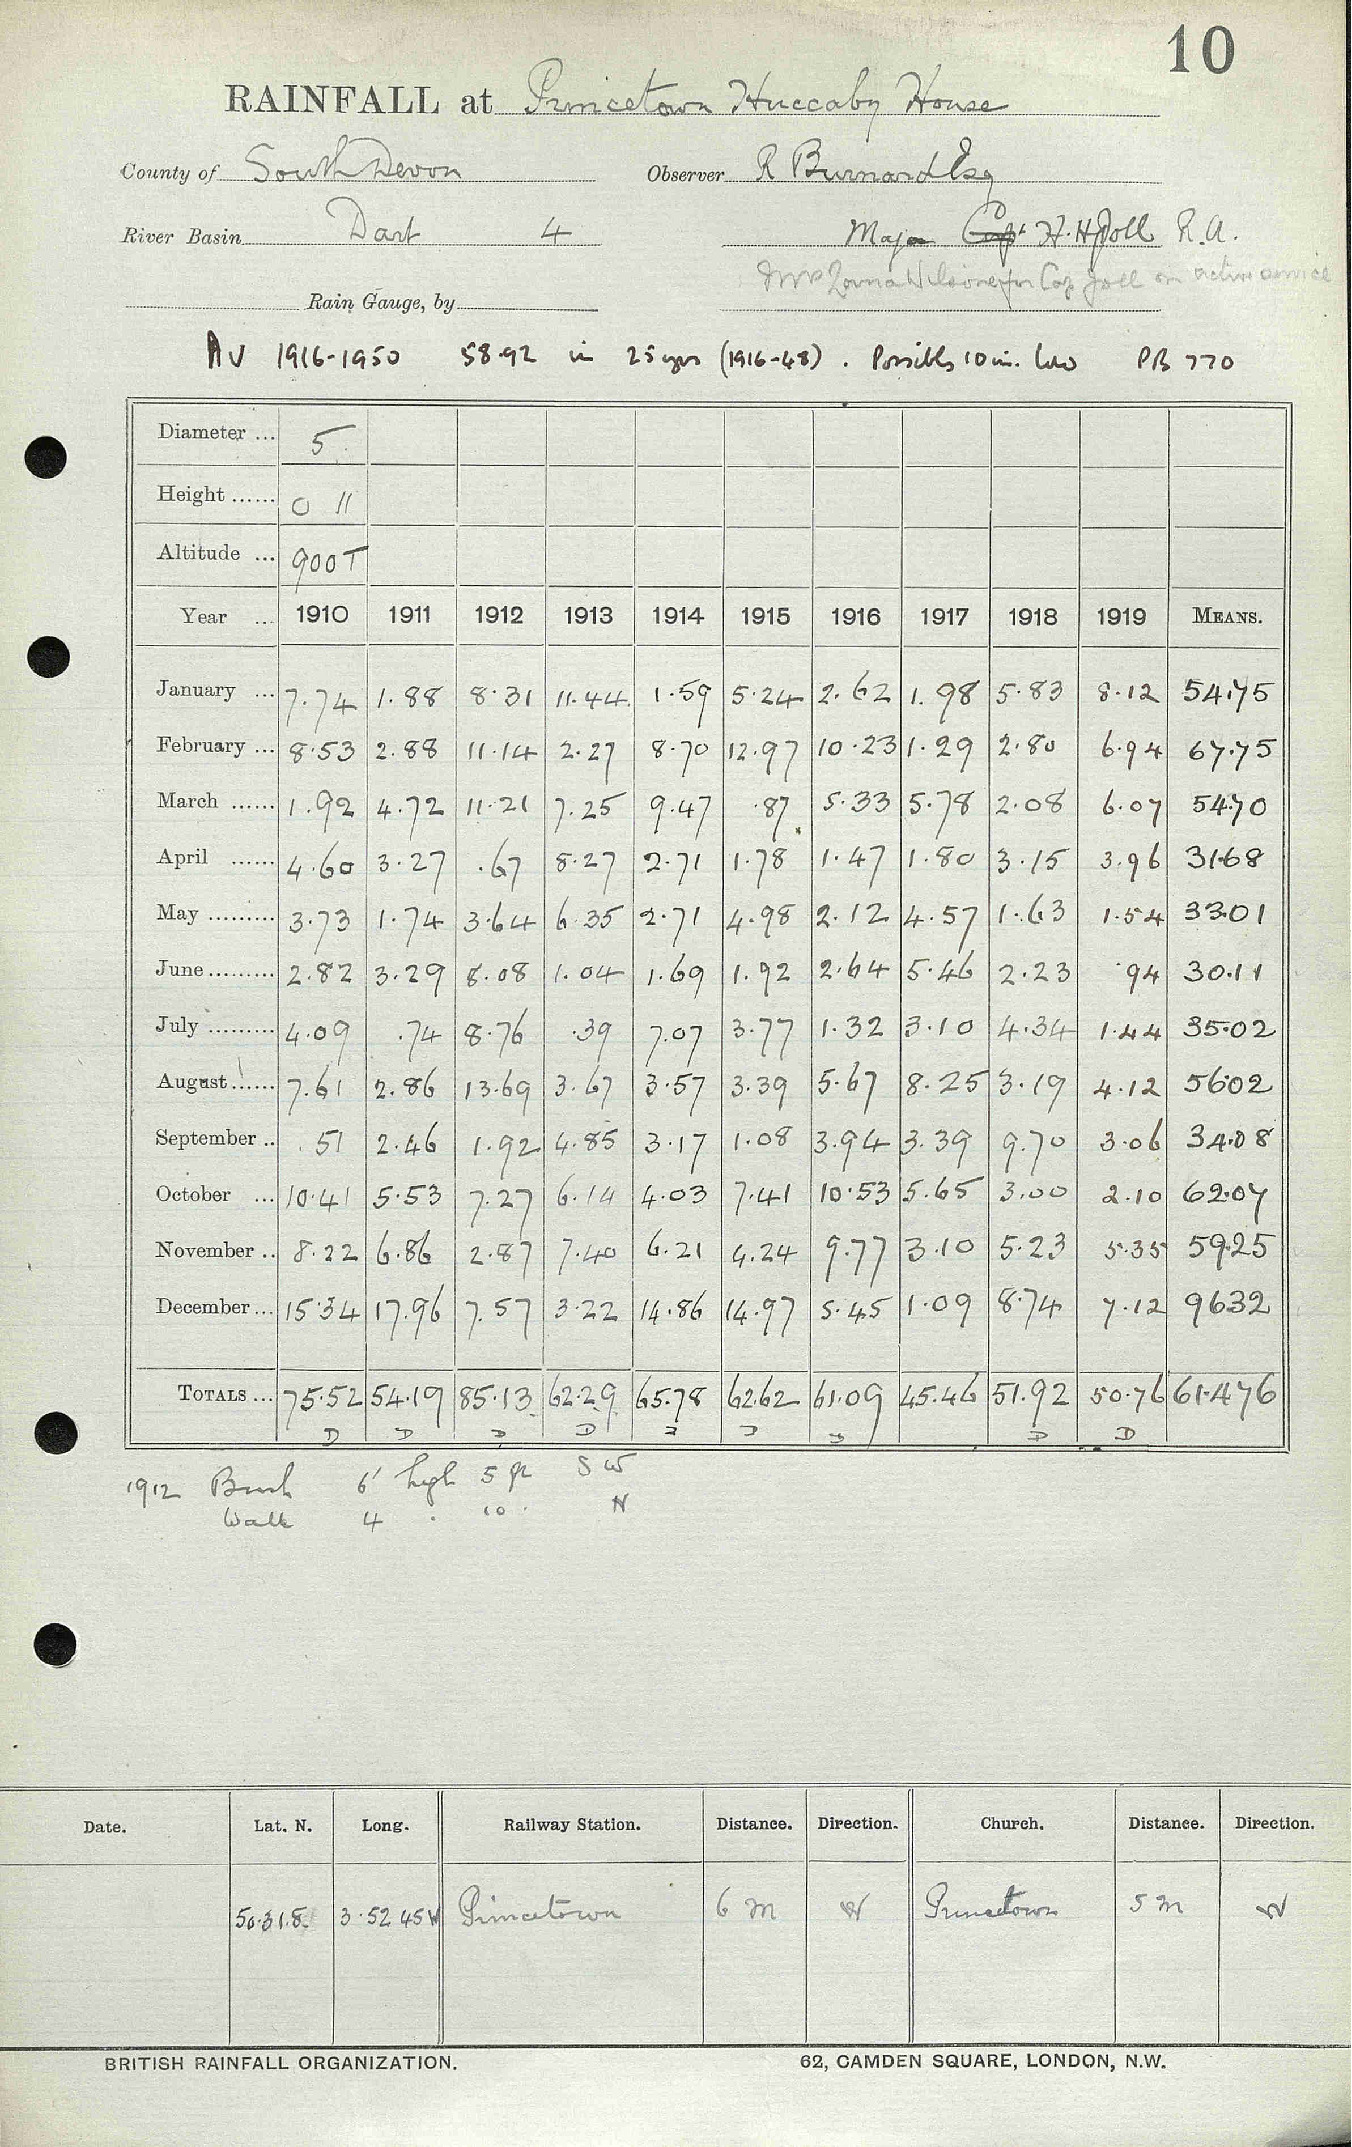 10
RAINFALL at Princetown Huccaby House
County of South Devon Observer R Burnard Esq
River Basin Dart 4 Major Capt H. H. Joll R.A.
Cap Joll on active service
Rain Gauge, by
Av 1916-1950 58.92 in 25 yrs (1916-48). Possibly 10 in. low PB 770
Diameter ... 5
Height ...... 0 11
Altitude ... 900 T
Year ... 1910 1911 1912 1913 1914 1915 1916 1917 1918 1919 MEANS.
January ... 7.74 1.88 8.31 11.44 1.59 5.24 2.62 1.98 5.83 8.12 54.75
February ... 8.53 2.88 11.14 2.27 8.70 12.97 10.23 1.29 2.80 6.94 67.75
March ...... 1.92 4.72 11.21 7.25 9.47 .87 5.33 5.78 2.08 6.07 54.70
April ...... 4.60 3.27 .67 8.27 2.71 1.78 1.47 1.80 3.15 3.96 31.68
May ......... 3.73 1.74 3.64 6.35 2.71 4.98 2.12 4.57 1.63 1.54 33.01
June ......... 2.82 3.29 8.08 1.04 1.69 1.92 2.64 5.46 2.23 .94 30.11
July ......... 4.09 .74 8.76 .39 7.07 3.77 1.32 3.10 4.34 1.44 35.02
August ...... 7.61 2.86 13.69 3.67 3.57 3.39 5.67 8.25 3.19 4.12 56.02
September .. .51 2.46 1.92 4.85 3.17 1.08 3.94 3.39 9.70 3.06 34.08
October ... 10.41 5.53 7.27 6.14 4.03 7.41 10.53 5.65 3.00 2.10 62.07
November .. 8.22 6.86 2.87 7.40 6.21 4.24 9.77 3.10 5.23 5.35 59.25
December ... 15.34 17.96 7.57 3.22 14.86 14.97 5.45 1.09 8.74 7.12 96.32
TOTALS ... 75.52 54.19 85.13 62.29 65.78 62.62 61.09 45.46 51.92 50.76 61.476
D D D D D D D D D
1912 Bush 6' high 5 ft SW
Wall 4 . 10 . N
Date. Lat. N. Long. Railway Station. Distance. Direction. Church. Distance. Direction.
50.31.5. 3.52 45 W Princetown 6 m W Princetown 5 m W
BRITISH RAINFALL ORGANIZATION. 62, CAMDEN SQUARE, LONDON, N.W.